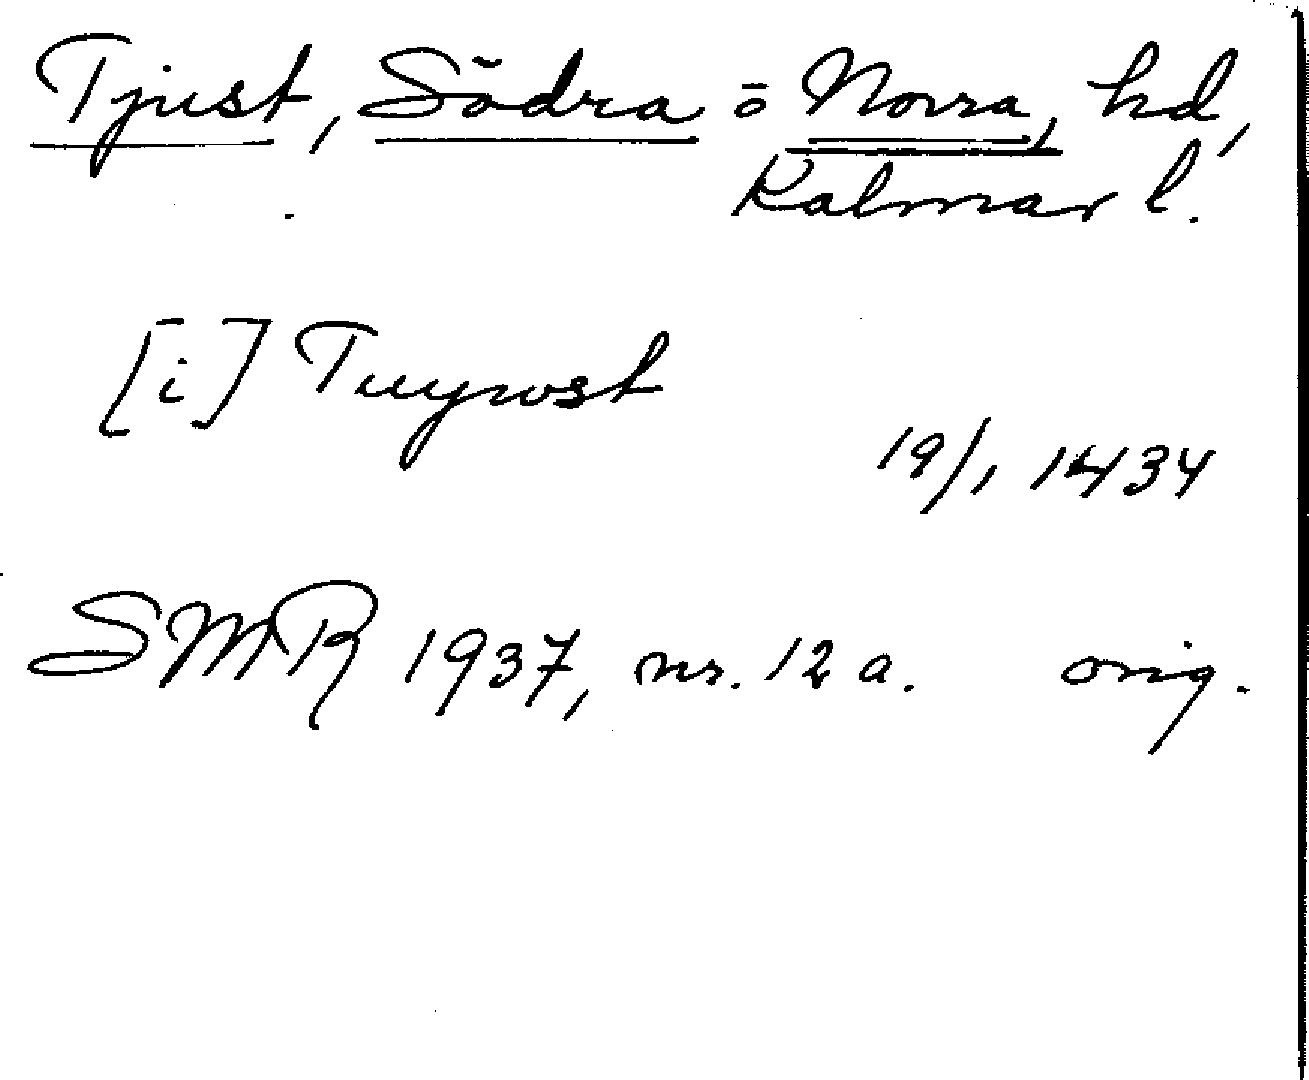 Tjust, Södra o Norra, hd,
Kalmar l.
[i] Tuywst
19/1 1434
SMR 1937, nr. 12 a. orig.